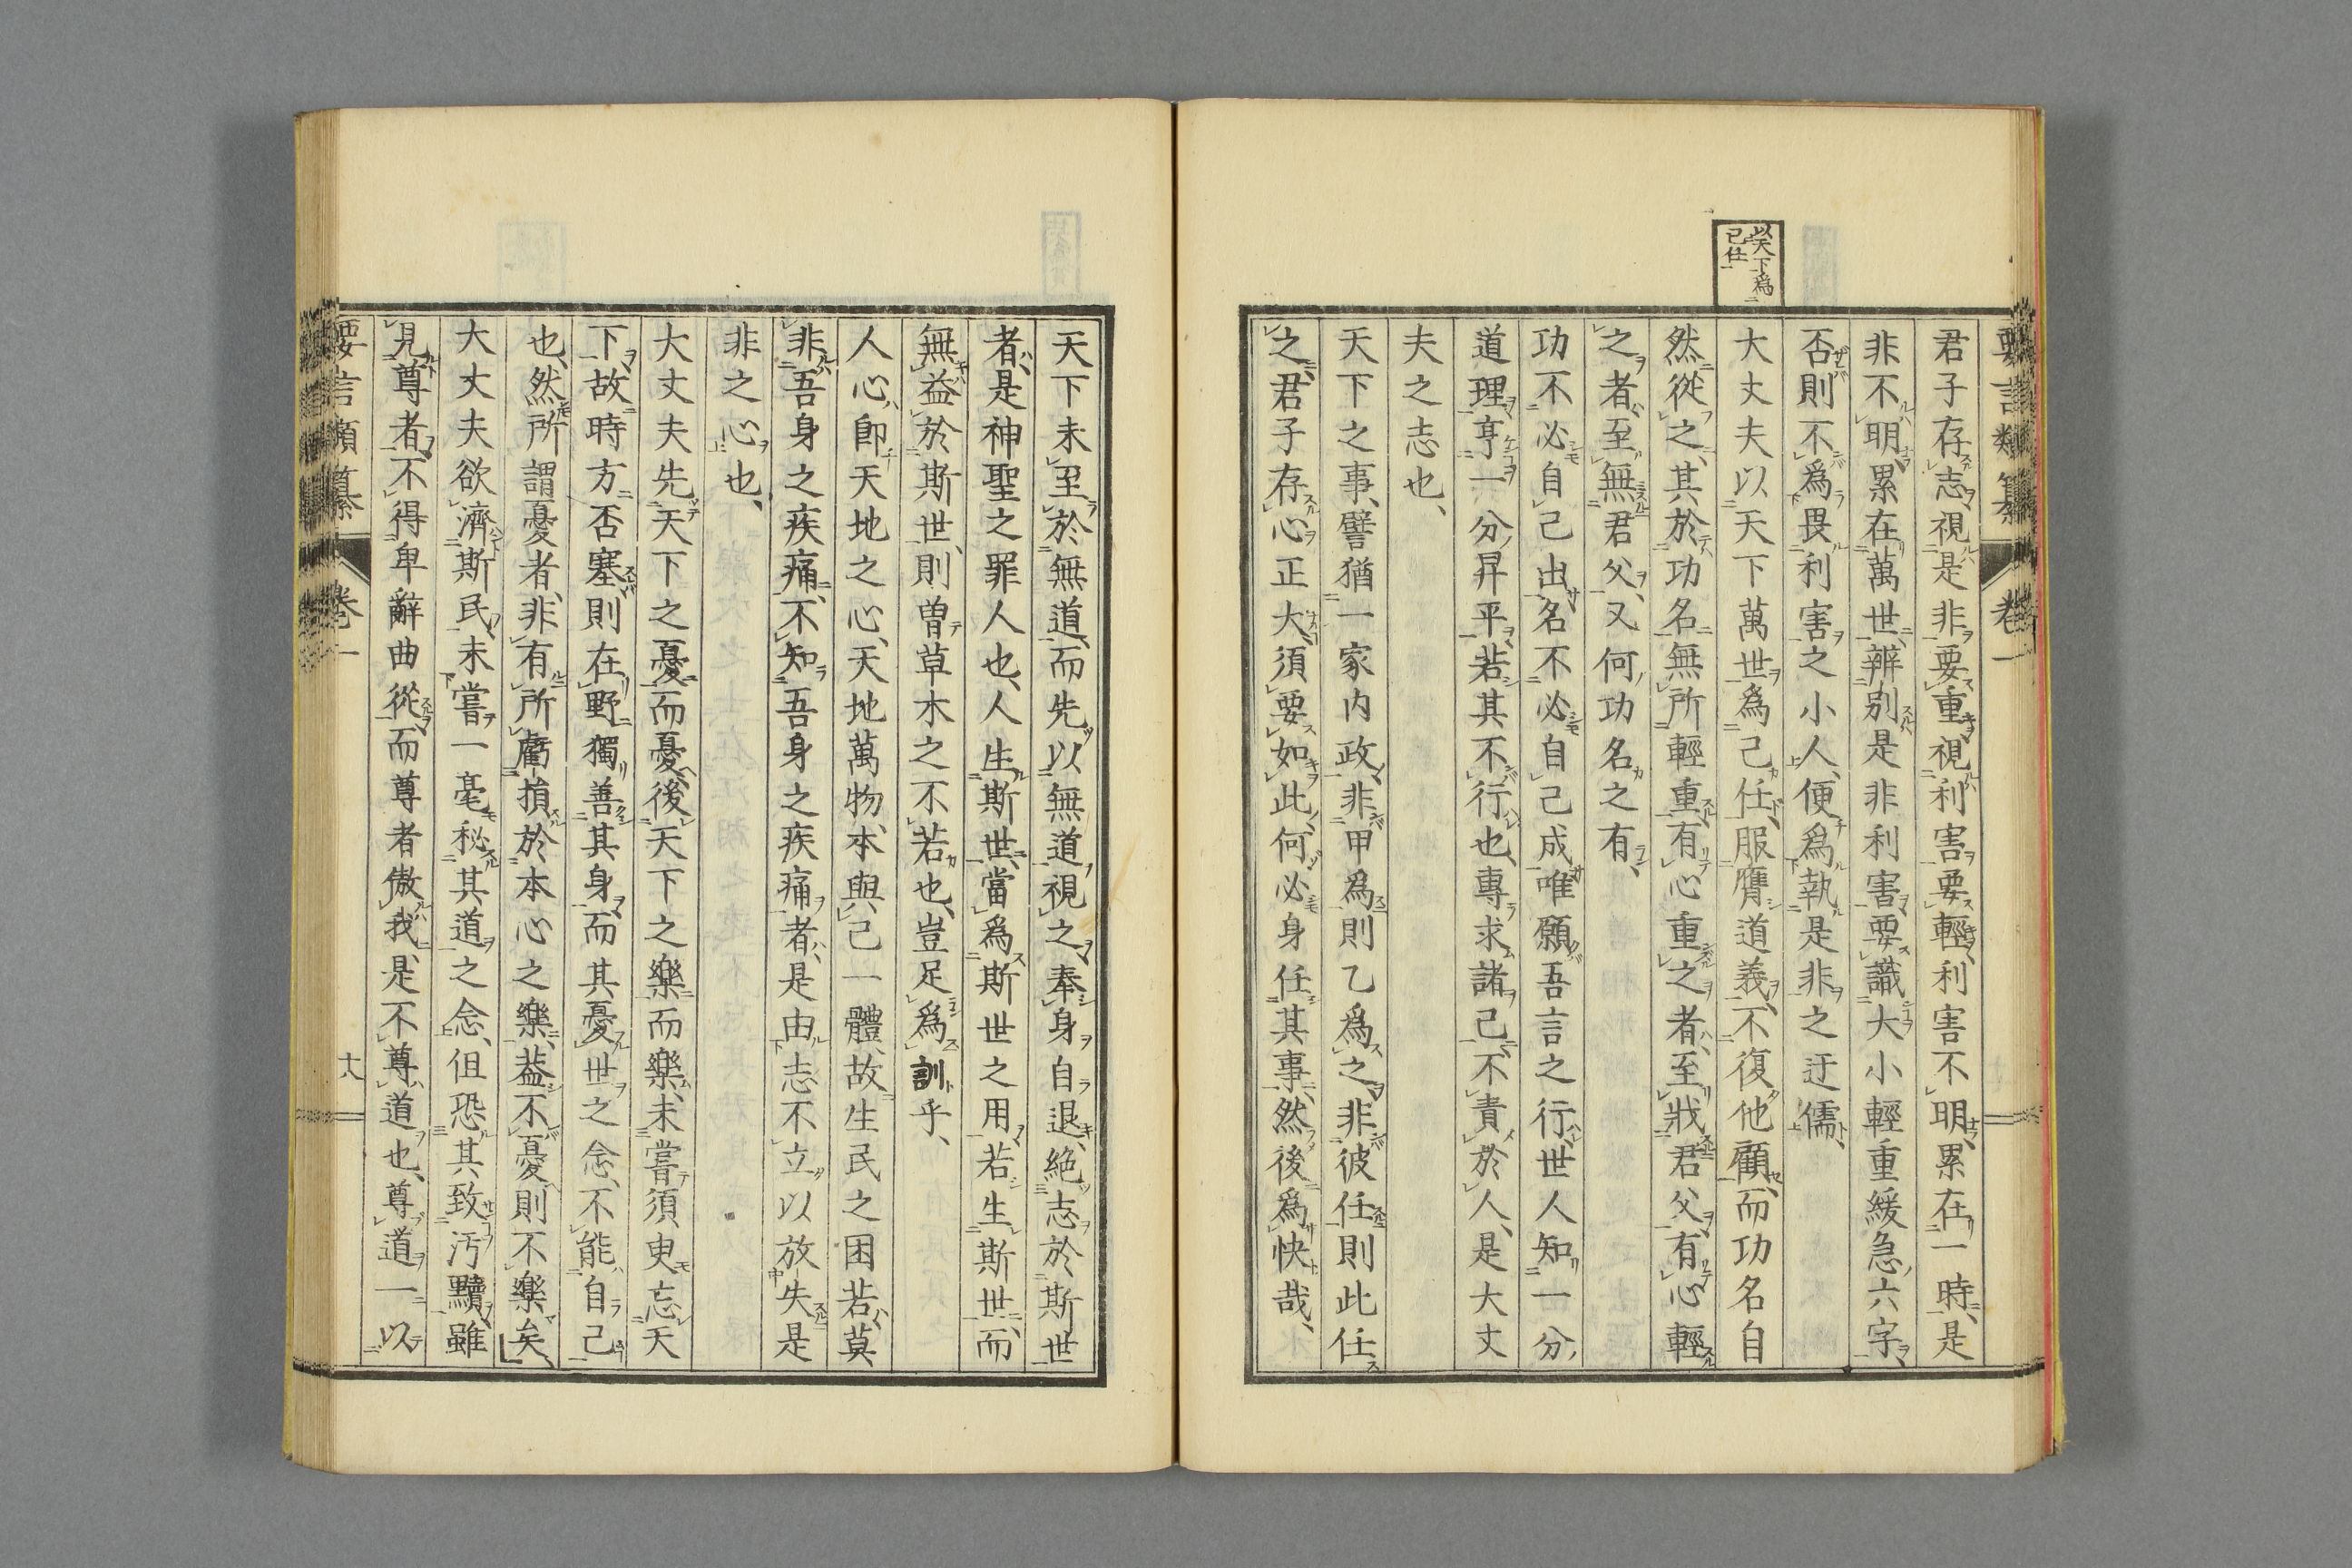 以天下爲
己任
要言類纂 卷一
君子存志視是非要重視利害要輕利害不明累在一時是
非不明累在萬世辨別是非利害要識大小輕重緩急六字
否則不爲畏利害之小人便爲執是非之迂儒
大丈夫以天下萬世爲己任服膺道義不復他顧而功名自
然從之其於功名無所輕重有心重之者至戕君父有心輕
之者至無君父又何功名之有
功不必自己出名不必自己成唯願吾言之行世人知一分
道理亨一分昇平若其不行也專求諸己不責於人是大丈
夫之志也
天下之事譬猶一家內政非甲爲則乙爲之非彼任則此任
之君子存心正大須要如此何必身任其事然後爲快哉
天下未至於無道而先以無道視之奉身自退絕志於斯世
者是神聖之罪人也人生斯世當爲斯世之用若生斯世而
無益於斯世則曾草木之不若也豈足爲訓乎
人心卽天地之心天地萬物本與己一體故生民之困苦莫
非吾身之疾痛不知吾身之疾痛者是由志不立以放失是
非之心也
大丈夫先天下之憂而憂後天下之樂而樂未嘗須臾忘天
下故時方否塞則在野獨善其身而其憂世之念不能自己
也然所謂憂者非有所虧損於本心之樂蓋不憂則不樂矣
大丈夫欲濟斯民未嘗一毫秘其道之念但恐其致汚黷雖
見尊者不得卑辭曲從而尊者傲我是不尊道也尊道一以
要言類纂 卷一 十八